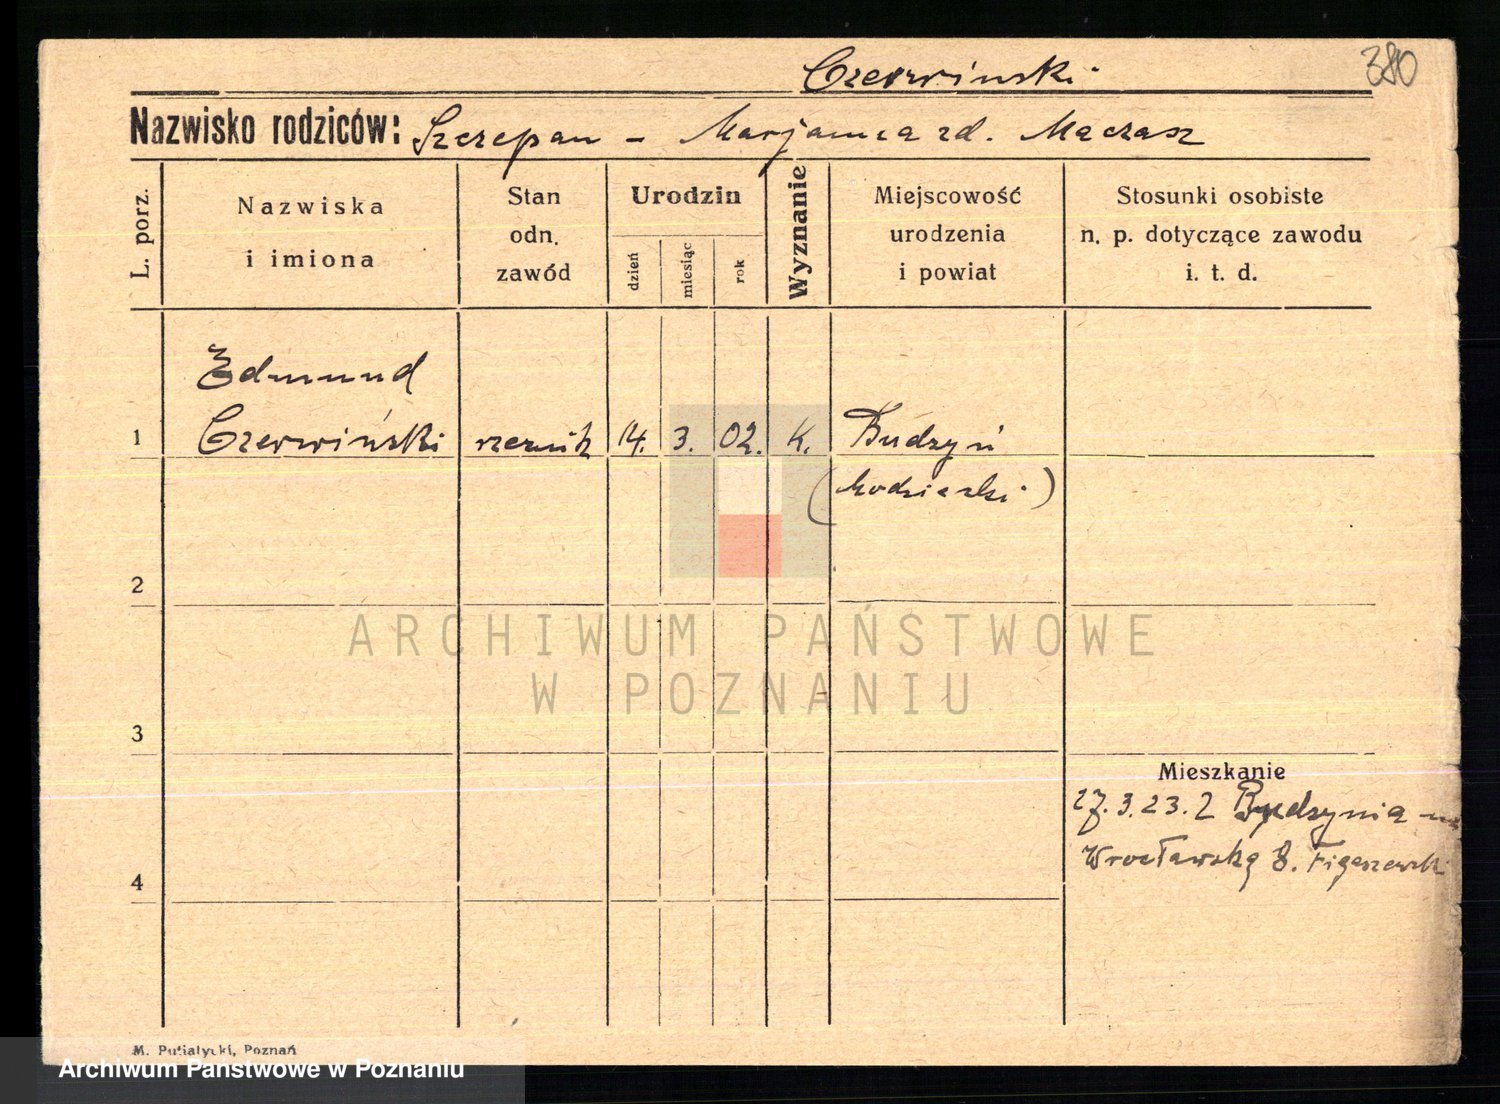 Czerwinski
380
Nazwisko rodziców: Szczepan - Marjanna zd. Maczasz
L. porz.
Nazwiska
i imiona
Stan
odn.
zawód
Urodzin
dzień
miesiąc
rok
Wyznanie
Miejscowość
urodzenia
i powiat
Stosunki osobiste
n. p. dotyczące zawodu
i. t. d.
Edmund
1 Czerwiński rzeźnik 14. 3. 02. K. Budzyń
2
3
Mieszkanie
27.3.23. z Budzynia na
Wrocławską 8.
4
M. Putiatycki, Poznań
ARCHIWUM PAŃSTWOWE
W POZNANIU
Archiwum Państwowe w Poznaniu